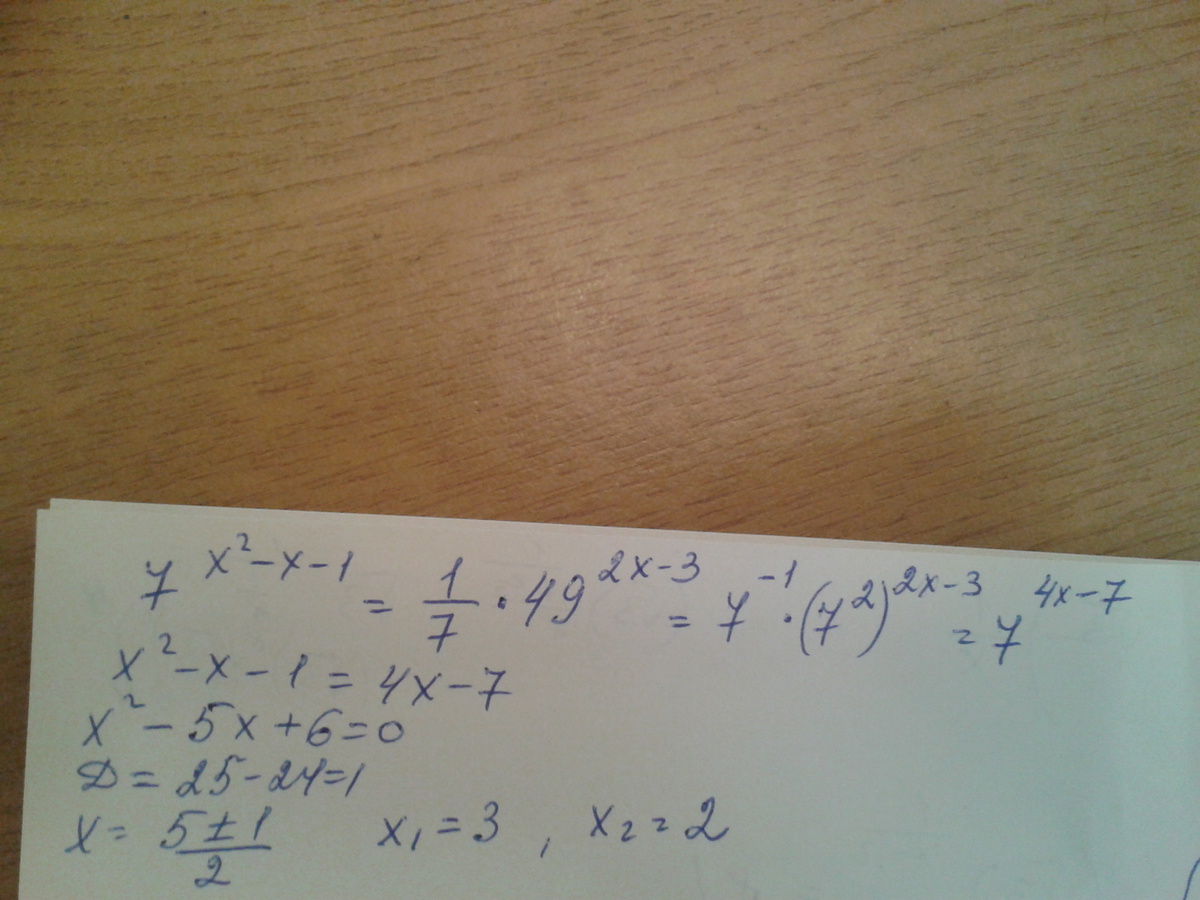 7^(x²-x-1) = 1/7 · 49^(2x-3) = 7^(-1) · (7²)^(2x-3) = 7^(4x-7)
x² - x - 1 = 4x - 7
x² - 5x + 6 = 0
D = 25 - 24 = 1
x = (5 ± 1)/2   x₁ = 3 , x₂ = 2